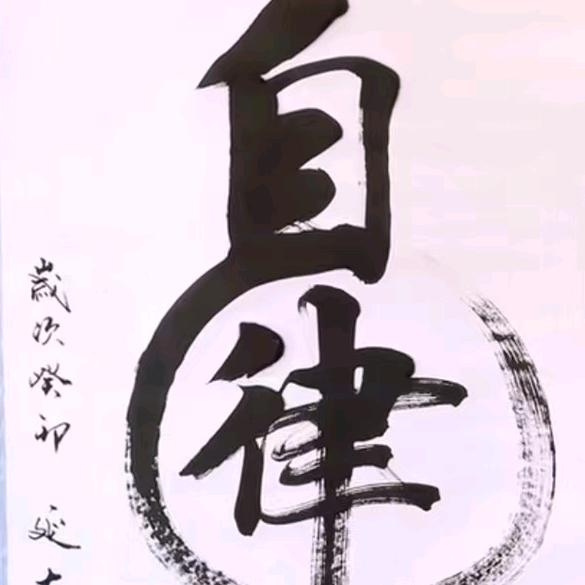 自律
歲次癸卯
延